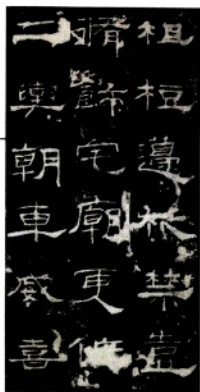 柤梪籩柉禁壺
脩飾宅廟更作
二輿朝車威熹